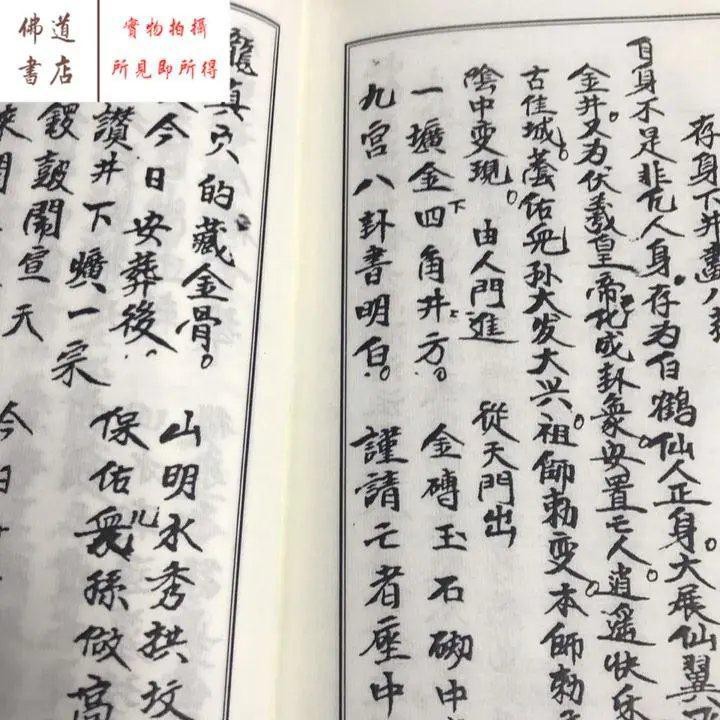 佛道
書店
實物拍攝
所見即所得
存身下井畫八
自身不是非凡人身。存为白鶴仙人正身。大展仙翼
金井又为伏羲皇帝化成卦象安置亡人。逍遥快乐
古佳城。蔭佑兒孙大发大兴。祖師勅变本師勅
陰中变現。由人門進 從天門出
一壙金下四角井方。金磚玉石砌中
九宮八卦書明白。謹請亡者座中
龍真穴的藏金骨。山明水秀拱坟
今日安葬後 保佑眾兒孫做高
讚井下壙一宗 今日
鼓鬧宣天